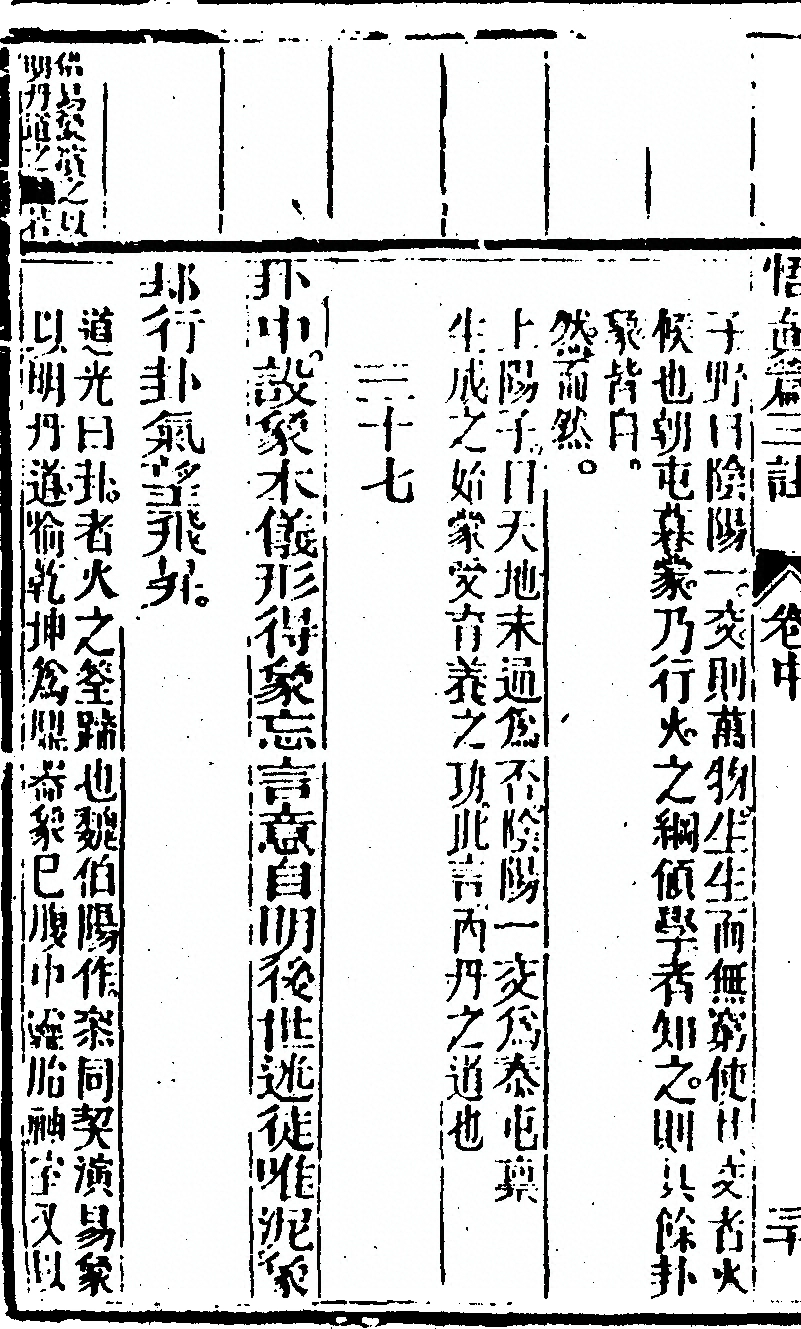 悟真篇三註　卷中　三十
子野曰陰陽一交則萬物生生而無窮使其交者火
候也朝屯暮蒙乃行火之綱領學者知之則其餘卦
象皆自
然而然
上陽子曰天地未通爲否陰陽一交爲泰屯稟
生成之始蒙受育養之功此言丙丹之道也
三十七
卦中設象本儀形得象忘言意自明後世迷徒唯泥象
却行卦氣望飛昇
道光曰卦者火之筌蹄也魏伯陽作叅同契演易象
以明丹道喻乾坤爲鼎器象巳腹中靈胎神室又以
借易象演之以
明丹道之 若